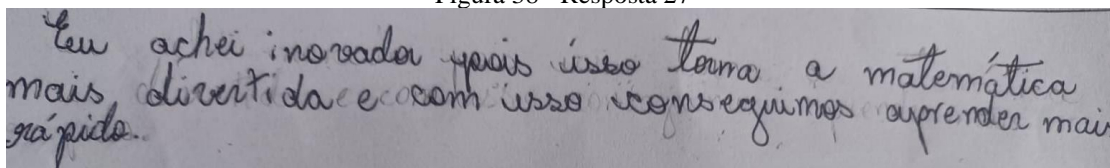 Figura 38 - Resposta 27
Eu achei inovador pois isso torna a matemática
mais divertida e com isso conseguimos aprender mai
rápido.